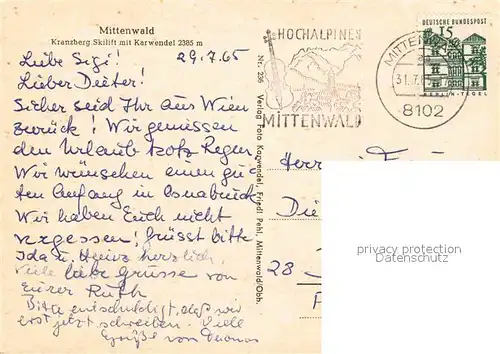 Mittenwald
Kranzberg Skilift mit Karwendel 2385 m
29.7.65
Liebe Sigi!
Lieber Dieter!
Sicher seid Ihr aus Wien
zurück! Wir geniessen
den Urlaub trotz Regen
Wir wünschen einen gu
ten Anfang in Osnabrück
Wir haben Euch nicht
vergessen! Grüsst bitte
Ida u. Heinz herzlich.
Viele liebe Grüsse von
Eurer Ruth
Bitte entschuldigt, daß wir
erst jetzt schreiben. Viele
Grüße von
Nr. 236 Verlag Foto Karwendel, Friedl Pehl, Mittenwald/Obb.
HOCHALPINES
MITTENWALD
MITTENWALD
31.7.
8102
DEUTSCHE BUNDESPOST
15
BERLIN-TEGEL
Herr
Di
28
privacy protection
Datenschutz